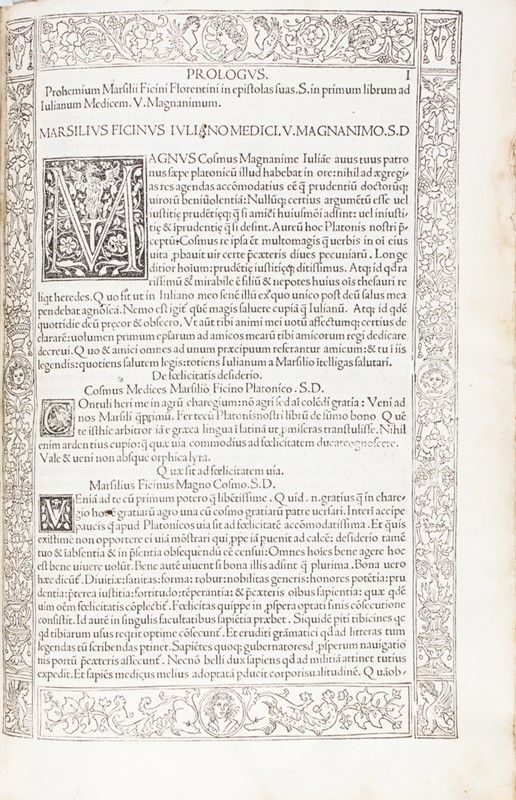 PROLOGVS. I
Prohemium Marsilii Ficini Florentini in epistolas suas. S. in primum librum ad
Iulianum Medicem. V. Magnanimum.
MARSILIVS FICINVS IVLIANO MEDICI. V. MAGNANIMO. S. D
MAGNVS Cosmus Magnanime Iuliãe auus tuus patro
nus sæpe platonicũ illud habebat in ore: nihil ad ægregi-
as res agendas accõmodatius cẽ q̃ prudentiũ doctorũq;
uirorũ beniuolentiã: Nullũq; certius argumẽtũ esse uel
iustitiẹ prudẽtiẹq; q̃ si amici huiusmõi adsint: uel iniusti-
tiẹ & ĩprudentiẹ q̃ si desint. Aureũ hoc Platonis nostri p̃-
ceptũ Cosmus re ipsa ẽt multo magis q̃ uerbis in oĩ eius
uita ꝓbauit uir certe p̃cæteris diues pecuniarũ. Longe
ditior hoium: prudẽtiẹ iustitiẹq; ditissimus. Atq; id qd ra
rissimũ & mirabile ẽ filiũ & nepotes huius oĩs thesauri re
liqt heredes. Quo fit ut in Iuliano meo senẽ illũ ex quo unico post deũ salus mea
pendebat agnosca. Nemo est igit̃ quẽ magis saluere cupiã q̃ Iulianũ. Atq; id qdẽ
quottidie deũ precor & obsecro. Vt aũt tibi animi mei uotũ affectũmq; certius de
clararẽ: uolumen primum epsarum ad amicos mearũ tibi amicorum regi dedicare
decreui. Quo & amici omnes ad unum præcipuum referantur amicum: & tu iis
legendis: quotiens salutem legis: totiens Iulianum a Marsilio ĩtelligas salutari.
De fœlicitatis desiderio.
Cosmus Medices Marsilio Ficino Platonico. S. D.
Contuli heri me in agrũ charegium: nõ agri sed aĩ colẽdi gratia: Veni ad
nos Marsili q̃primũ. Fer tecũ Platonis nostri librũ de sũmo bono. Quẽ
te isthic arbitror iã e græca lingua ĩ latinã ut ꝓmiseras transtulisse. Nihil
enim ardentius cupio: q̃ quæ uia commodius ad fœlicitatem ducat cognoscere.
Vale & ueni non absque orphica lyra.
Quæ sit ad fœlicitatem uia.
Marsilius Ficinus Magno Cosmo. S. D.
Veniã ad te cũ primum potero q̃ libẽtissime. Quid .n. gratius q̃ in chare-
gio hoc ẽ gratiarũ agro una cũ cosmo gratiarũ patre uersari. Interĩ accipe
paucis q̃ apud Platonicos uia sit ad fœlicitatẽ accõmodatissima. Et quis
existime non opportere ei uiã mõstrari qui ꝓpe iã puenit ad calcẽ: desiderio tamẽ
tuo & ĩ absentia & in p̃sentia obsequendũ cẽ censui: Omnes hoĩes bene agere hoc
est bene uiuere uolũt. Bene autẽ uiuent si bona illis adsint q̃ plurima. Bona uero
hæc dicũt̃. Diuitiæ: sanitas: forma: robur: nobilitas generis: honores potẽtia: pru
dentia: p̃terea iustitia: fortitudo: tẽperantia: & p̃cæteris oĩbus sapientia: quæ qdẽ
uim oẽm fœlicitatis cõplectit̃. Fœlicitas quippe in ꝓspera optati finis cõsecutione
consistit. Id autẽ in singulis facultatibus sapiẽtia præbet. Siquidẽ piti tibicines qc
qd tibiarum usus reqrit optime cõsecunt̃. Et eruditi grãmatici qd ad litteras tum
legendas tũ scribendas ptinet. Sapiẽtes quoq; gubernatores d ꝓsperum nauigatio
nis portũ p̃cæteris assecunt̃. Necnõ belli dux sapiens qd ad militiã attinet tutius
expedit. Et sapiẽs medicus melius ad optatã pducit corporis ualitudinẽ. Quãob-